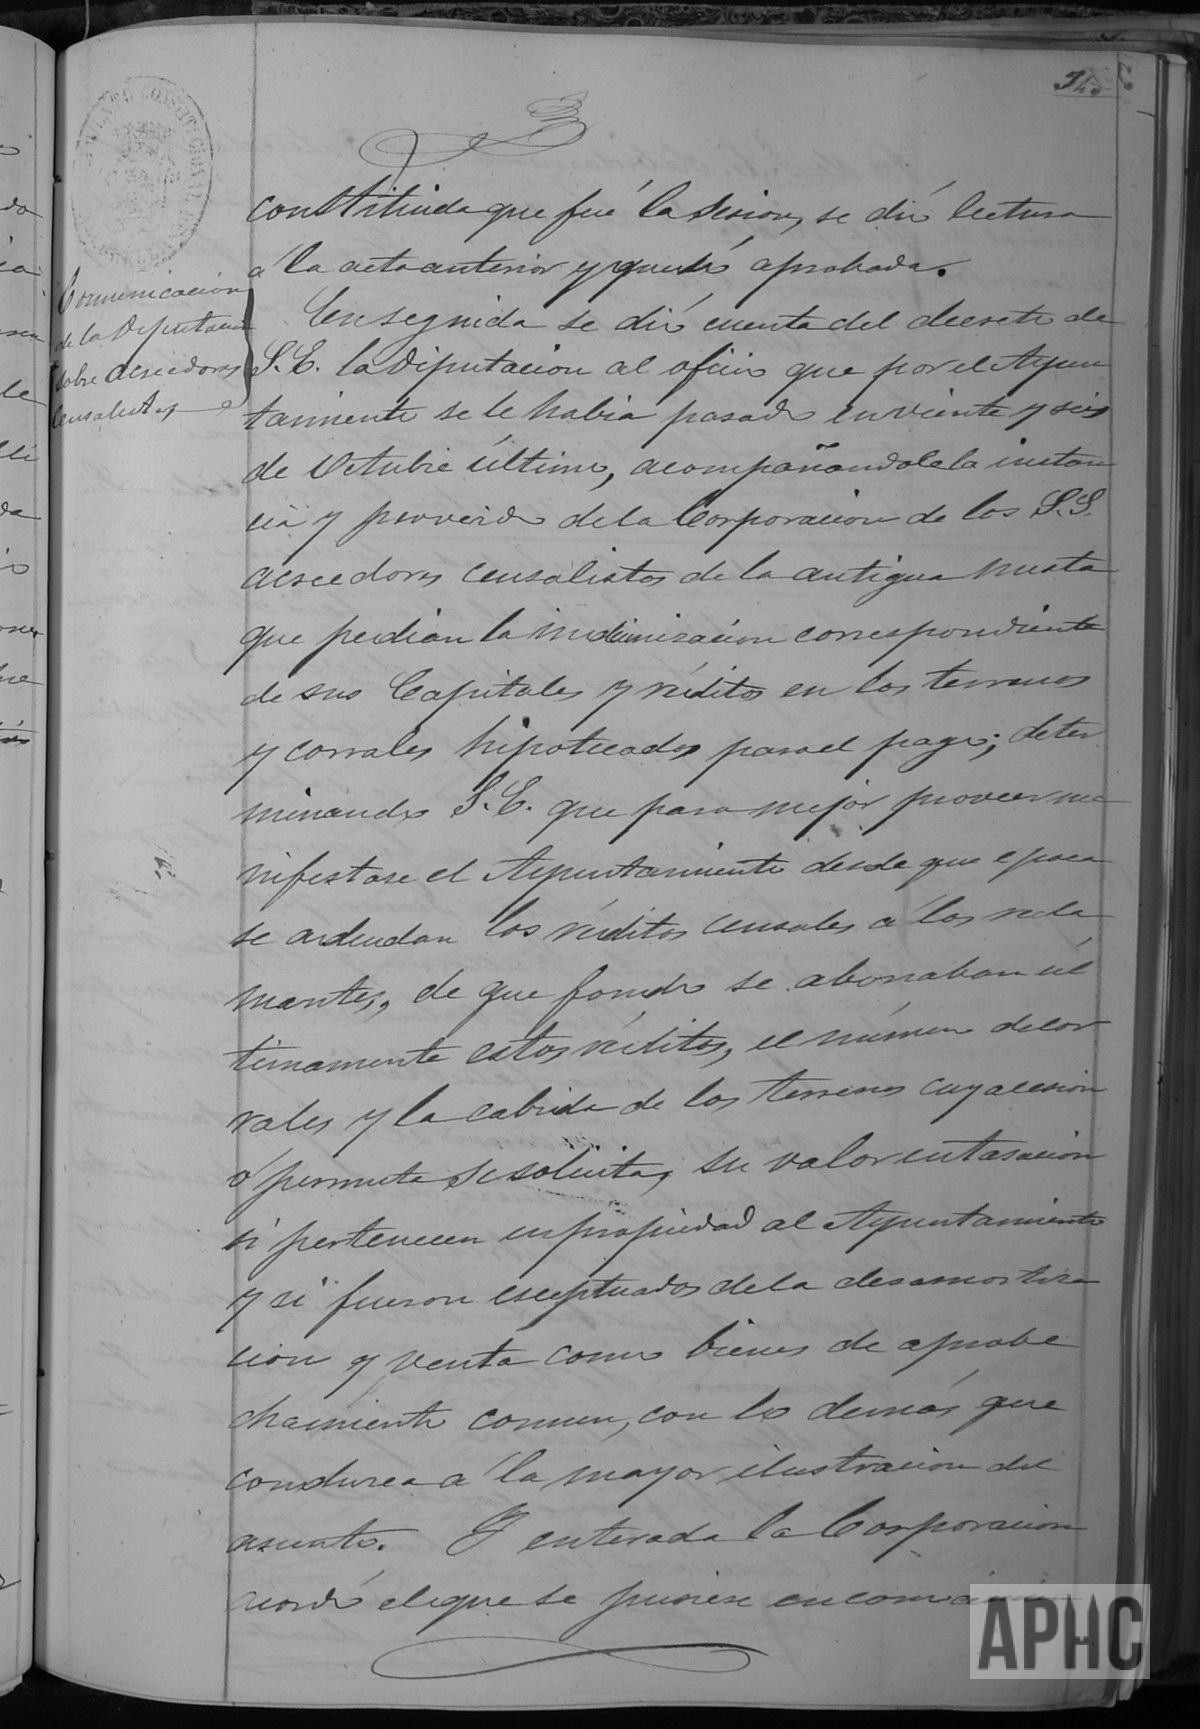 constituida que fué la sesion, se dió lectura
á la acta anterior y quedó aprobada.
Comunicacion
de la Diputacion
sobre acreedores
censalistas
Enseguida se dió cuenta del decreto de
S.E. la Diputacion al oficio que por el Ayun
tamiento se le habia pasado en veinte y seis
de Octubre último, acompañandole la instan
cia y proveido de la Corporacion de los S.S.
acreedores censalistas de la antigua
que pedian la indemnizacion correspondiente
de sus Capitales y réditos en los terrenos
y corrales hipotecados para el pago; deter
minando S.E. que para mejor proveer ma
nifestase el Ayuntamiento desde que epoca
se adeudan los réditos censales á los recla
mantes, de que fondo se abonaban úl
timamente estos réditos, el número de cor
rales y la cabida de los terrenos cuya cesion
ó permuta se solicita, su valor en tasacion
si pertenecen en propiedad al Ayuntamiento
y si fueron esceptuados de la desamortiza
cion y venta como bienes de aprobe
chamiento comun, con lo demás que
conduzca á la mayor ilustracion del
asunto. Y enterada la Corporacion
acordó el que se pusiese en
APHC